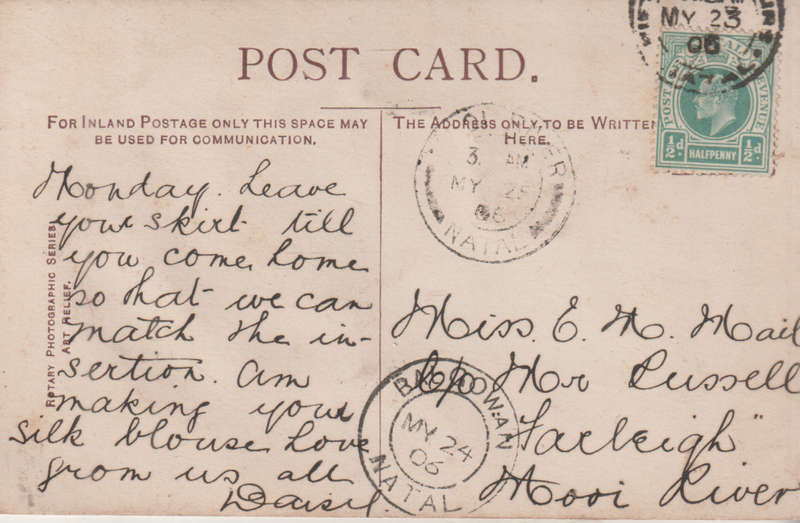 POST CARD.
FOR INLAND POSTAGE ONLY THIS SPACE MAY
BE USED FOR COMMUNICATION.
THE ADDRESS ONLY TO BE WRITTEN
HERE.
Monday. Leave
your skirt till
you come home
so that we can
match the in-
sertion. am
making your
silk blouse Love
from us all
Daisy.
ROTARY PHOTOGRAPHIC SERIES
ART RELIEF.
Miss. E. M. Mail
C/o Mr Russell
"Farleigh"
Mooi River
MY 23
06
POSTAGE REVENUE
½d HALFPENNY ½d
RIVER
3 AM
MY 25
06
NATAL
BALGOWAN
MY 24
06
NATAL